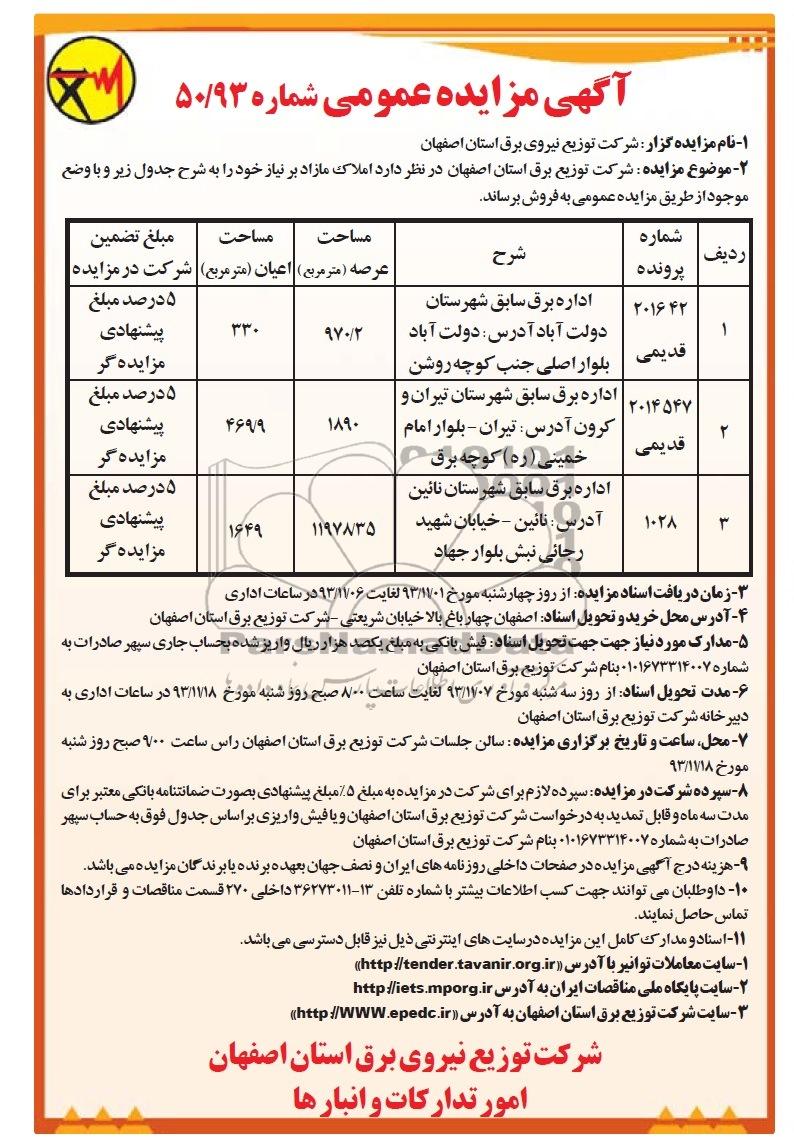 آگهی مزایده عمومی شماره ۵۰/۹۳
۱-نام مزایده گزار : شرکت توزیع نیروی برق استان اصفهان
۲- موضوع مزایده : شرکت توزیع برق استان اصفهان در نظر دارد املاک مازاد بر نیاز خود را به شرح جدول زیر و با وضع
موجود از طریق مزایده عمومی به فروش برساند.
ردیف | شماره پرونده | شرح | مساحت عرصه (متر مربع) | مساحت اعیان (متر مربع) | مبلغ تضمین شرکت در مزایده
۱ | ۲۰۱۶۴۲ قدیمی | اداره برق سابق شهرستان دولت آباد آدرس : دولت آباد بلوار اصلی جنب کوچه روشن | ۹۷۰/۲ | ۳۳۰ | ۵ درصد مبلغ پیشنهادی مزایده گر
۲ | ۲۰۱۴۵۴۷ قدیمی | اداره برق سابق شهرستان تیران و کرون آدرس : تیران - بلوار امام خمینی (ره) کوچه برق | ۱۸۹۰ | ۴۶۹/۹ | ۵ درصد مبلغ پیشنهادی مزایده گر
۳ | ۱۰۲۸ | اداره برق سابق شهرستان نائین آدرس : نائین - خیابان شهید رجائی نبش بلوار جهاد | ۱۱۹۷۸/۳۵ | ۱۶۴۹ | ۵ درصد مبلغ پیشنهادی مزایده گر
۳- زمان دریافت اسناد مزایده: از روز چهارشنبه مورخ ۹۳/۱۱/۰۱ لغایت ۹۳/۱۱/۰۶ در ساعات اداری
۴- آدرس محل خرید و تحویل اسناد: اصفهان چهارباغ بالا خیابان شریعتی - شرکت توزیع برق استان اصفهان
۵- مدارک مورد نیاز جهت جهت تحویل اسناد : فیش بانکی به مبلغ یکصد هزار ریال واریز شده بحساب جاری سپهر صادرات به
شماره ۰۱۰۱۶۷۳۳۱۴۰۰۷ بنام شرکت توزیع برق استان اصفهان
۶- مدت تحویل اسناد: از روز سه شنبه مورخ ۹۳/۱۱/۰۷ لغایت ساعت ۸/۰۰ صبح روز شنبه مورخ ۹۳/۱۱/۱۸ در ساعات اداری به
دبیرخانه شرکت توزیع برق استان اصفهان
۷- محل، ساعت و تاریخ برگزاری مزایده : سالن جلسات شرکت توزیع برق استان اصفهان راس ساعت ۹/۰۰ صبح روز شنبه
مورخ ۹۳/۱۱/۱۸
۸- سپرده شرکت در مزایده : سپرده لازم برای شرکت در مزایده به مبلغ ۵٪ مبلغ پیشنهادی بصورت ضمانتنامه بانکی معتبر برای
مدت سه ماه و قابل تمدید به درخواست شرکت توزیع برق استان اصفهان و یا فیش واریزی بر اساس جدول فوق به حساب سپهر
صادرات به شماره ۰۱۰۱۶۷۳۳۱۴۰۰۷ بنام شرکت توزیع برق استان اصفهان
۹- هزینه درج آگهی مزایده در صفحات داخلی روزنامه های ایران و نصف جهان بعهده برنده یا برندگان مزایده می باشد.
۱۰- داوطلبان می توانند جهت کسب اطلاعات بیشتر با شماره تلفن ۱۳-۳۶۲۷۳۰۱۱ داخلی ۲۷۰ قسمت مناقصات و قراردادها
تماس حاصل نمایند.
۱۱- اسناد و مدارک کامل این مزایده در سایت های اینترنتی ذیل نیز قابل دسترسی می باشد.
۱- سایت معاملات توانیر با آدرس ((http://tender.tavanir.org.ir))
۲- سایت پایگاه ملی مناقصات ایران به آدرس http://iets.mporg.ir
۳- سایت شرکت توزیع برق استان اصفهان به آدرس ((http://WWW.epedc.ir))
شرکت توزیع نیروی برق استان اصفهان
امور تدارکات و انبار ها
ParsNamadData